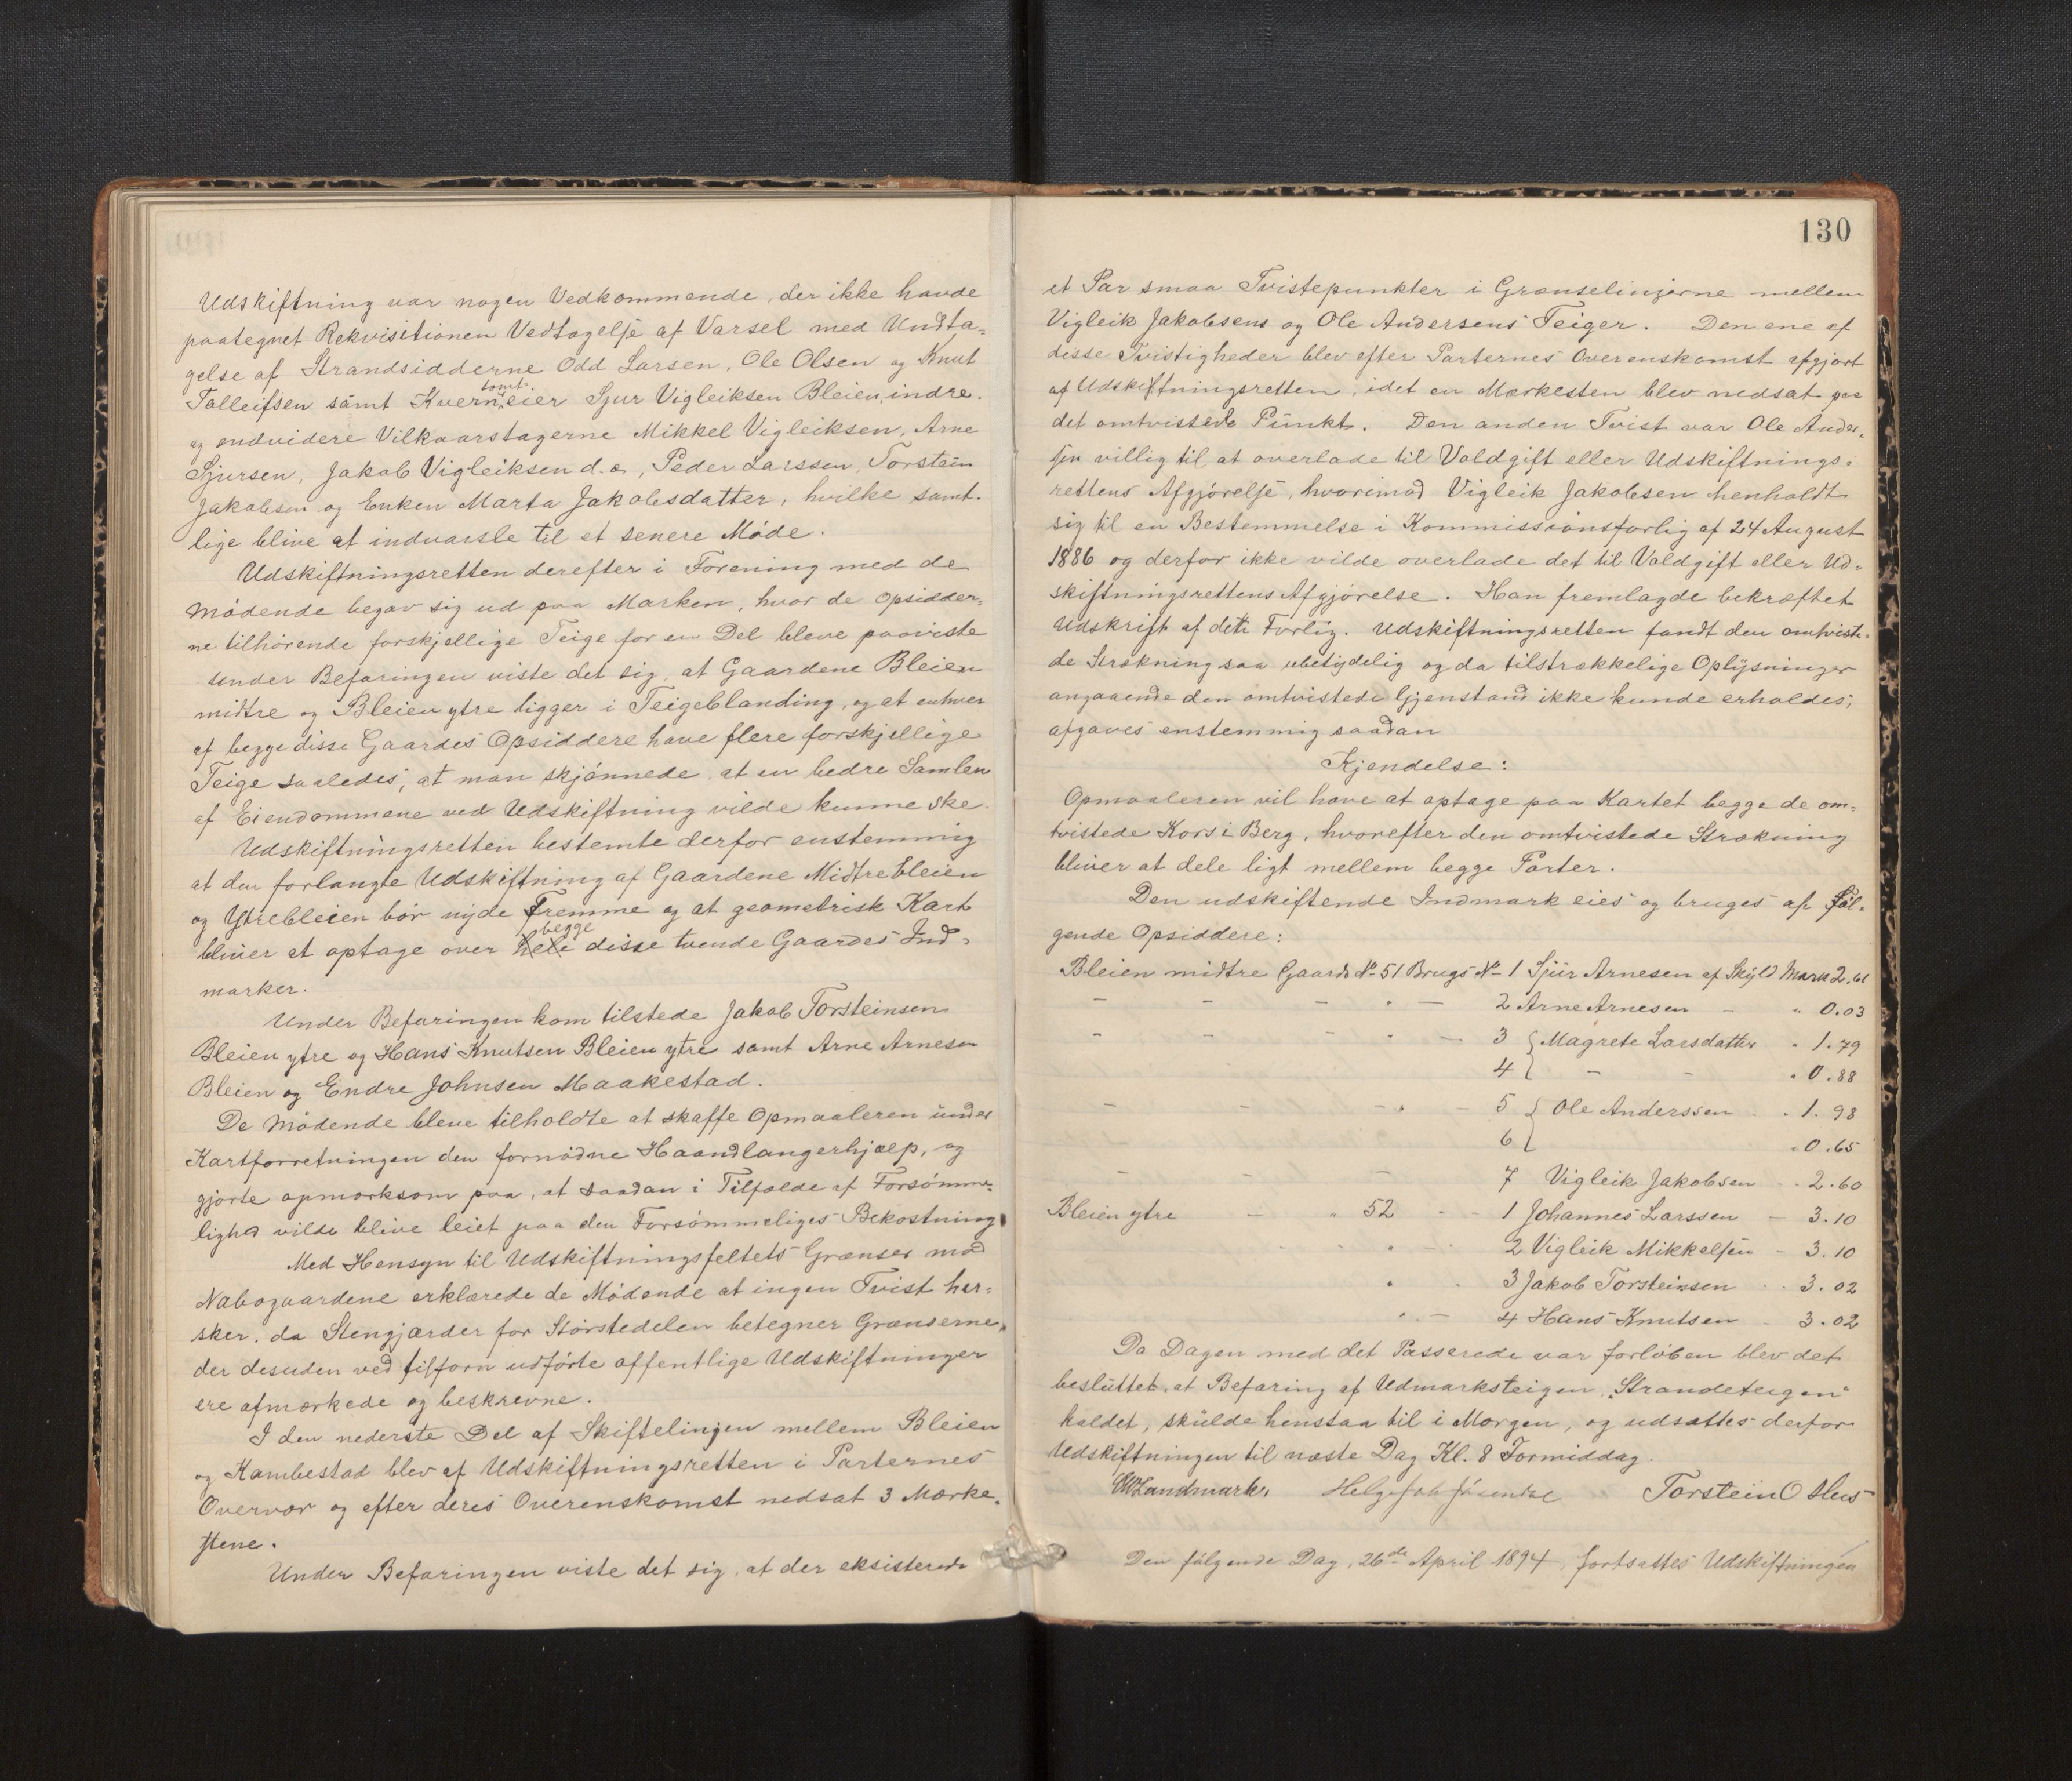 Udskiftning var nogen Vedkommende, der ikke havde
paategnet Rekvisitionen Vedtagelse af Varsel med Undta-
gelse af Strandsidderne Odd Larsen, Ole Olsen og Knut
Tolleifsen samt Kverntomteier Sjur Vigleiksen Bleien indre.
og endvidere Vilkaarstagerne Mikkel Vigleiksen, Arne
Sjursen, Jakob Vigleiksen d.æ., Peder Larssen, Torstein
Jakobsen og Enken Marta Jakobsdatter, hvilke samt-
lige blive at indvarsle til et senere Møde.
Udskiftningsretten derefter i Forening med de
Mødende begav sig ud paa Marken, hvor de Opsidder-
ne tilhørende forskjellige Teige for en Del bleve paaviste
Under Befaringen viste det sig, at Gaardene Bleien
midtre og Bleien ytre ligger i Teigeblanding, og at enhver
af begge disse Gaardes Opsiddere have flere forskjellige
Teige saaledes, at man skjønnede at en bedre Samlen
af Eiendommene ved Udskiftning vilde kunne ske.
Udskiftningsretten bestemte derfor enstemmig
at den forlangte Udskiftning af Gaardene Midtrebleien
og Ytrebleien bør nyde Fremme og at geometrisk Kart
bliver at optage over hele begge disse tvende Gaardes Ind-
marker.
Under Befaringen kom tilstede Jakob Torsteinsen
Bleien ytre og Hans Knutsen Bleien ytre samt Arne Arnesen
Bleien og Endre Johnsen Maakestad.
De Mødende bleve tilholdte at skaffe Opmaaleren under
Kartforretningen den fornødne Haandlangerhjælp, og
gjorte opmærksom paa, at saadan i Tilfælde af Forsømme-
lighed vilde blive leiet paa den Forsømmeliges Bekostning
Med Hensyn til Udskiftningsfeltets Grænser mod
Nabogaardene erklærede de Mødende at ingen Tvist her-
sker, da Stengjærder for Størstedelen betegner Grænserne,
der desuden ved tilforn udførte offentlige Udskiftninger
ere afmærkede og beskrevne.
I den nederste Del af Skiftelinjen mellem Bleien
og Kambestad blev af Udskiftningsretten i Parternes
Overvær og efter deres Overenskomst nedsat 3 Mærke-
stene.
Under Befaringen viste det sig, at der eksisterede
130
et Par smaa Tvistepunkter i Grænselinjerne mellem
Vigleik Jakobsens og Ole Andersens Teiger. Den ene af
disse Tvistigheder blev efter Parternes Overenskomst afgjort
af Udskiftningsretten, idet en Mærkesten blev nedsat paa
det omtvistede Punkt. Den anden Tvist var Ole Ander-
sen villig til at overlade til Voldgift eller Udskiftnings-
rettens Afgjørelse, hvorimod Vigleik Jakobsen henholdt
sig til en Bestemmelse i Kommissionsforlig af 24 August
1886 og derfor ikke vilde overlade det til Voldgift eller Ud-
skiftningsrettens Afgjørelse. Han fremlagde bekræftet
Udskrift af dette Forlig. Udskiftningsretten fandt den omtviste-
de Strækning saa ubetydelig og da tilstrækkelige Oplysninger
angaaende den omtvistede Gjenstand ikke kunde erholdes,
afgaves enstemmig saadan
Kjendelse:
Opmaaleren vil have at optage paa Kartet begge de om-
tvistede Kors i Berg, hvorefter den omtvistede Strækning
bliver at dele ligt mellem begge Parter.
Den udskiftende Indmark eies og bruges af føl-
gende Opsiddere:
Bleien midtre Gaards No 51 Brugs No 1 Sjur Arnesen af Skyld Mark 2.61
- - - " - 2 Arne Arnesen - " 0.03
- - - " - 3 { Magrete Larsdatter " 1.79
4 { - - " 0.88
- - - " - 5 { Ole Anderssen " 1.98
6 { " 0.65
- - - 7 Vigleik Jakobsen - 2.60
Bleien ytre - " 52 - - 1 Johannes Larssen - 3.10
" - 2 Vigleik Mikkelsen - 3.10
" - 3 Jakob Torsteinsen - 3.02
" - 4 Hans Knutsen - 3.02
Da Dagen med det Passerede var forløben blev det
besluttet, at Befaring af Udmarksteigen "Strandeteigen"
kaldet, skulde henstaa til i Morgen, og udsattes derfor
Udskiftningen til næste Dag Kl. 8 Formiddag.
Landmark. Torstein O Hus
Den følgende Dag, 26de April 1894, fortsattes Udskiftningen